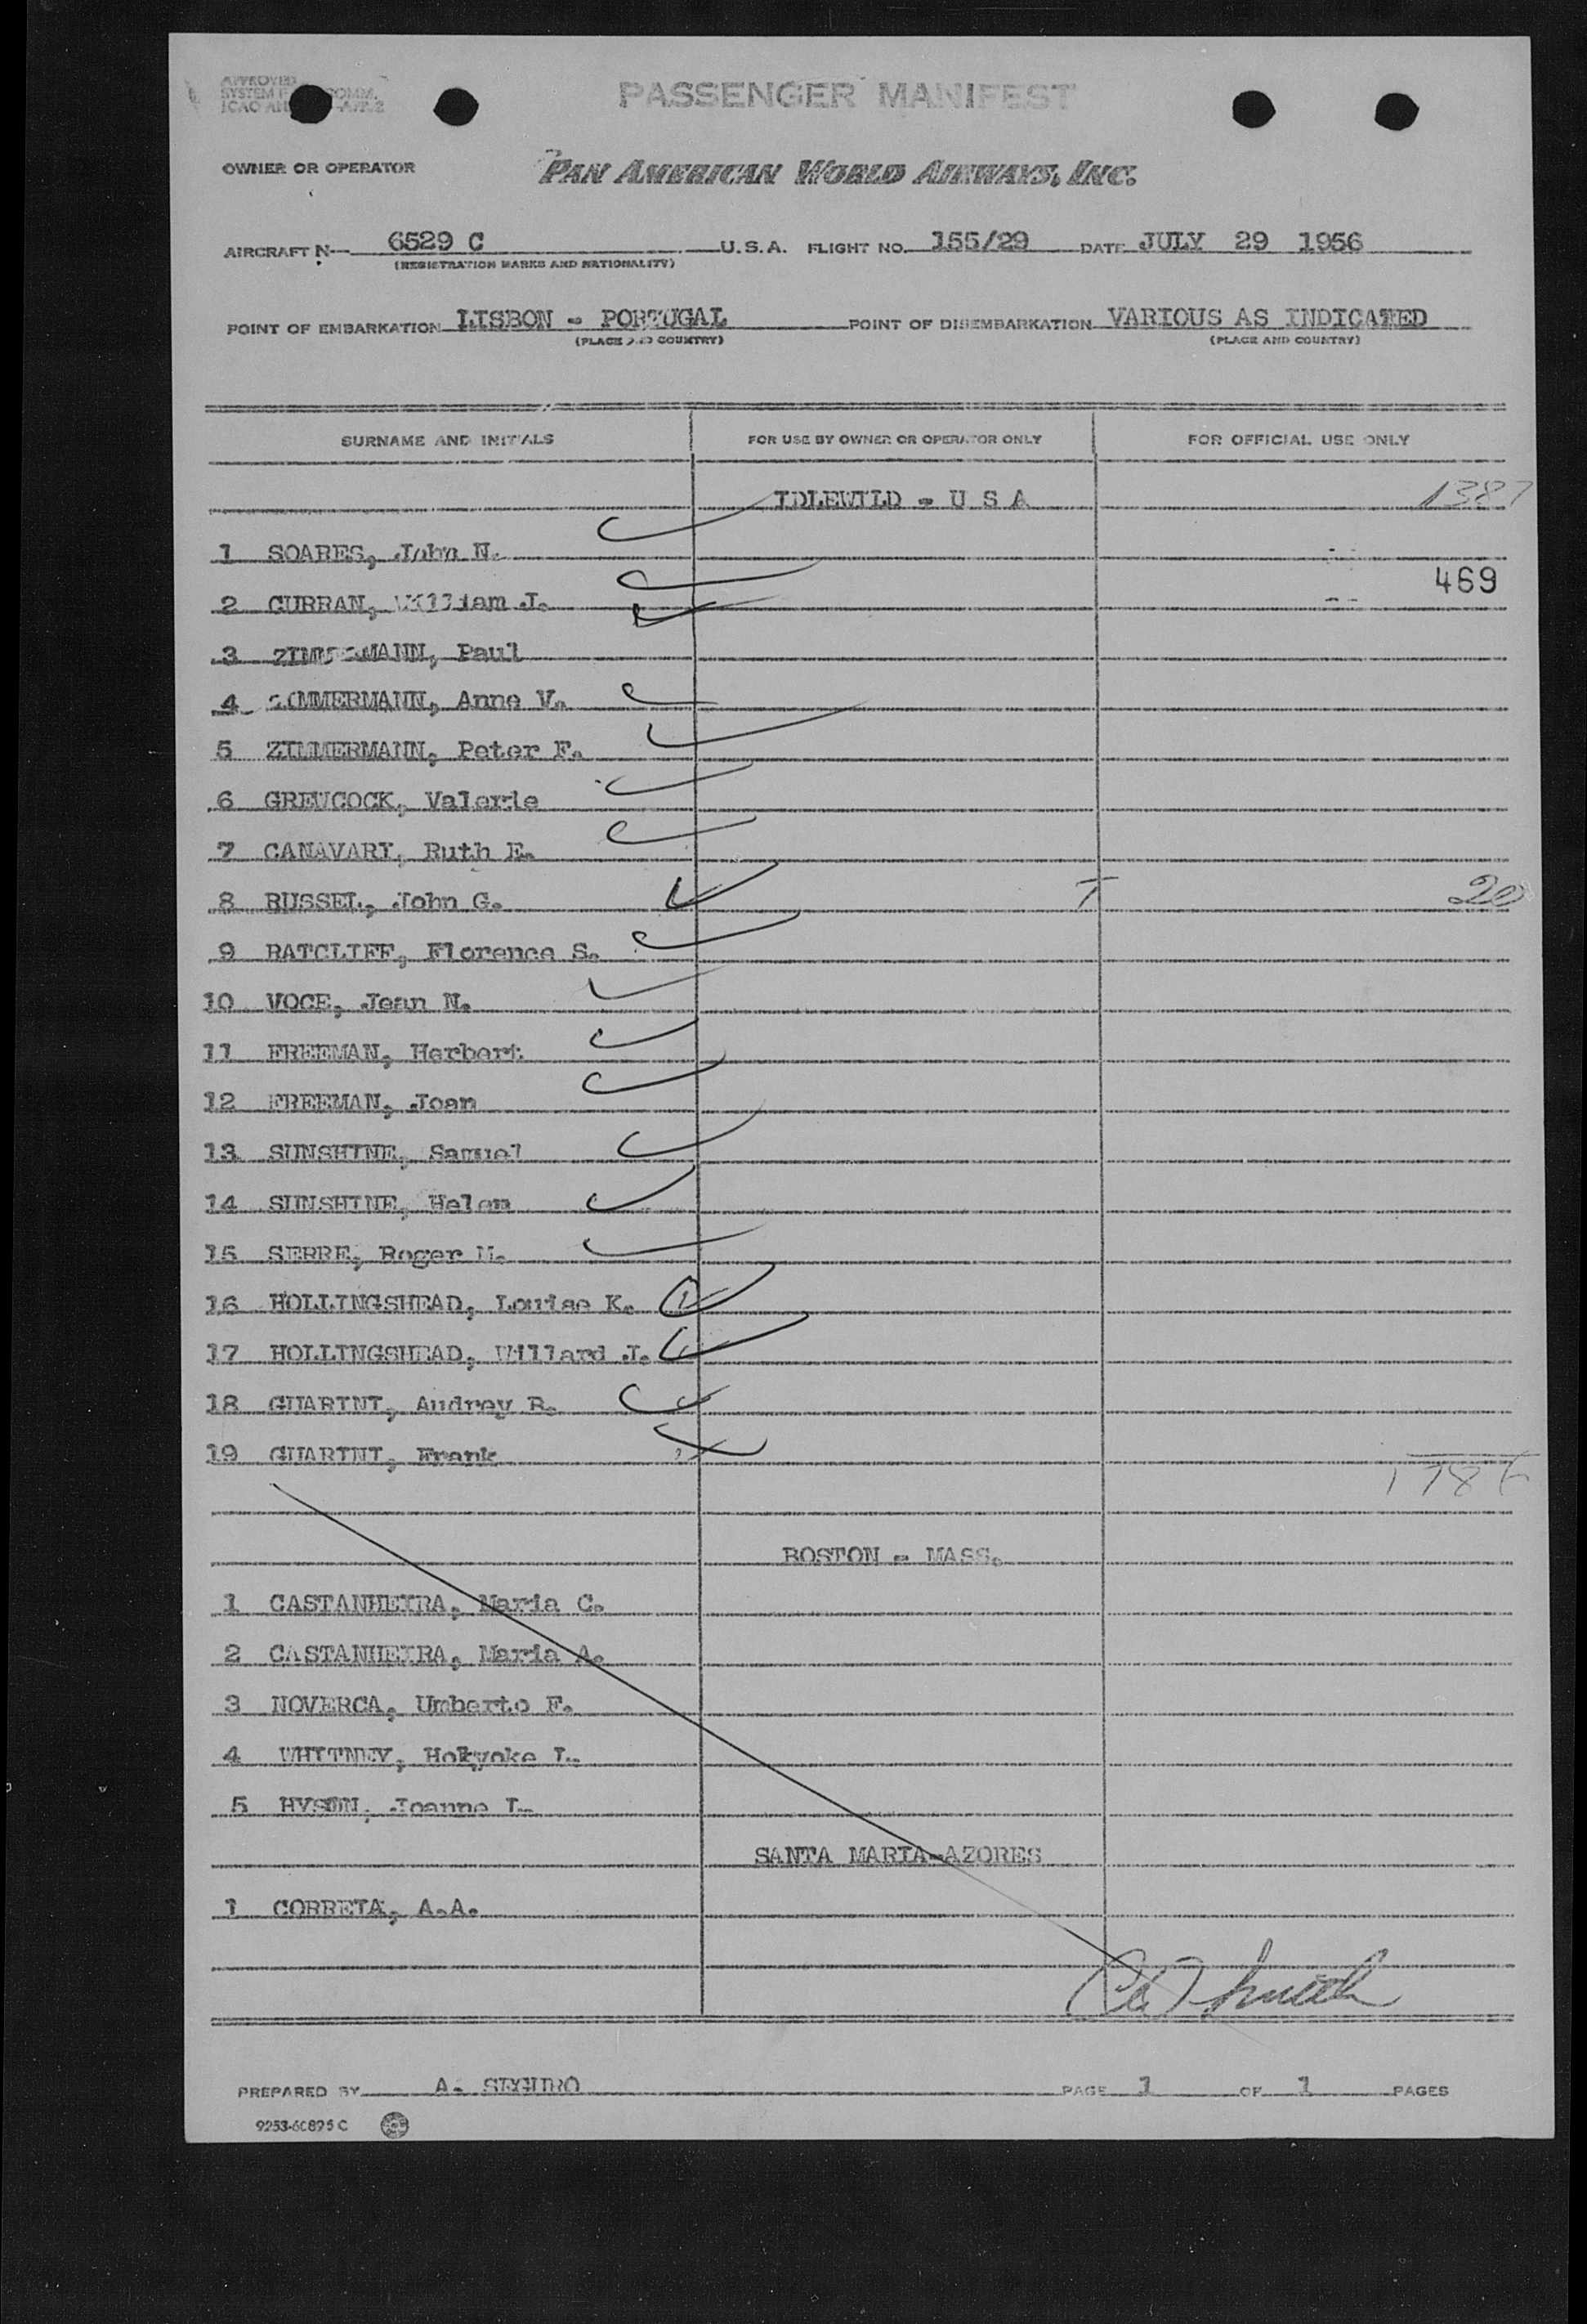 APPROVED
SYSTEM COMM.
ICAO
PASSENGER MANIFEST
OWNER OR OPERATOR PAN AMERICAN WORLD AIRWAYS, INC.
AIRCRAFT N- 6529 C U.S.A. FLIGHT NO. 155/29 DATE JULY 29 1956
(REGISTRATION MARKS AND NATIONALITY)
POINT OF EMBARKATION LISBON - PORTUGAL POINT OF DISEMBARKATION VARIOUS AS INDICATED
(PLACE AND COUNTRY) (PLACE AND COUNTRY)
SURNAME AND INITIALS FOR USE BY OWNER OR OPERATOR ONLY FOR OFFICIAL USE ONLY
IDLEWILD - U S A 1387
1 SOARES, John N.
469
2 CURRAN, William J.
3 ZIMMERMANN, Paul
4 ZIMMERMANN, Anne V.
5 ZIMMERMANN, Peter F.
6 GREUCOCK, Valerie
7 CANAVARI, Ruth E.
8 RUSSEL, John G. 20
9 RATCLIFF, Florence S.
10 VOCE, Jean N.
11 FREEMAN, Herbert
12 FREEMAN, Joan
13 SUNSHINE, Samuel
14 SUNSHINE, Helen
15 SERRE, Roger M.
16 HOLLINGSHEAD, Louise K.
17 HOLLINGSHEAD, Willard J.
18 GUARINI, Audrey B.
19 GUARINI, Frank
BOSTON - MASS.
1 CASTANHEIRA, Maria C.
2 CASTANHEIRA, Maria A.
3 NOVERCA, Umberto F.
4 WHITNEY, Holyoke L.
5 HYSON, Joanne L.
SANTA MARIA-AZORES
1 CORREIA, A.A.
PREPARED BY A. SEGURO PAGE 1 OF 1 PAGES
9253-60895 C